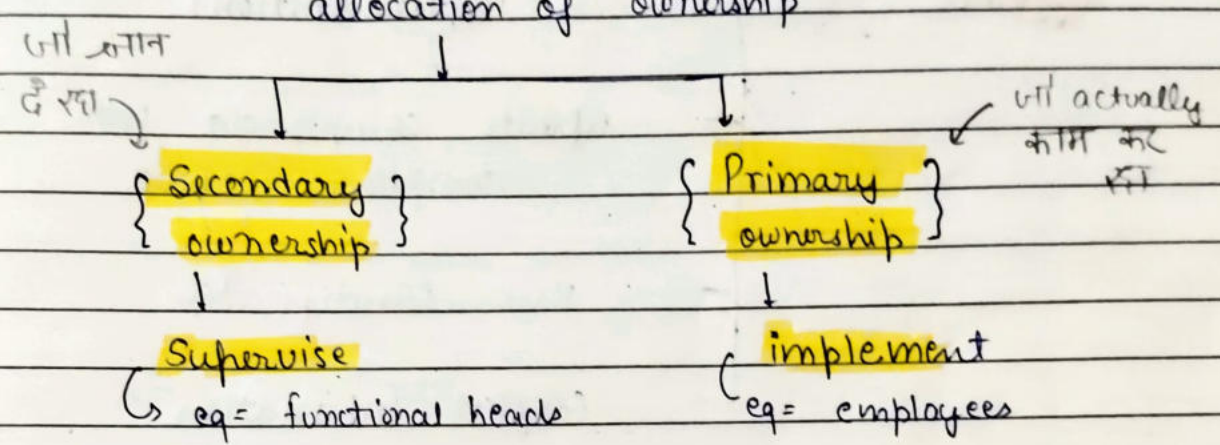 allocation of ownership
जो ज्ञान
दे रहा
जो actually
काम कर
रहा
{ Secondary
ownership }
{ Primary
ownership }
Supervise
eg= functional heads
implement
eg= employees